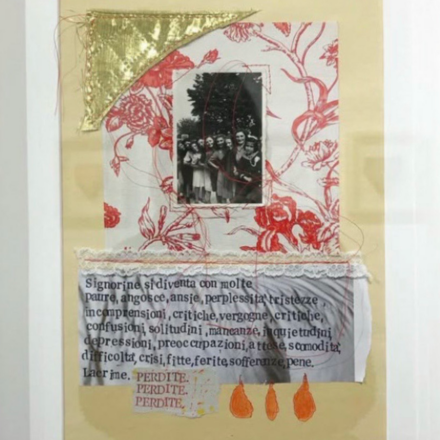 Signorine si diventa con molte
paure, angosce, ansie, perplessità, tristezze,
incomprensioni, critiche, vergogne, critiche,
confusioni, solitudini, mancanze, inquietudini
depressioni, preoccupazioni, attese, scomodità,
difficoltà, crisi, fitte, ferite, sofferenze, pene.
Lacrime. PERDITE.
PERDITE.
PERDITE.